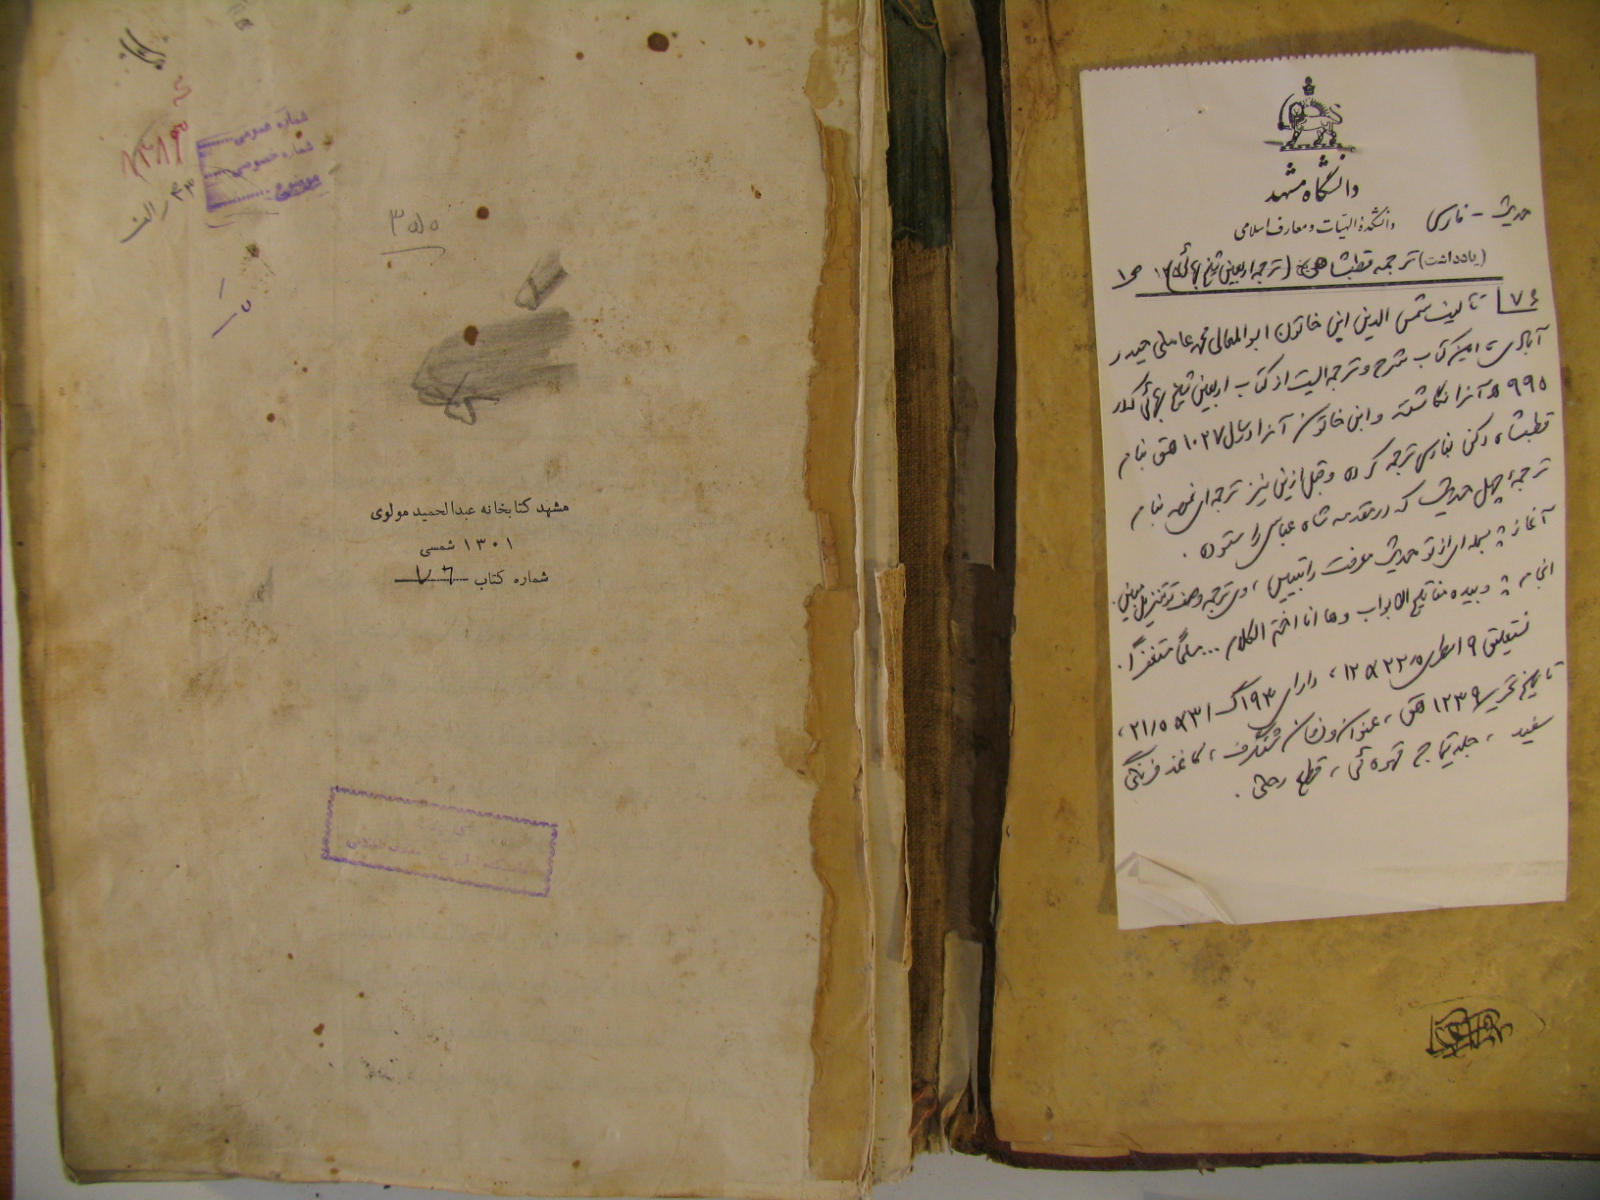 دانشگاه مشهد
حدیث - فارسی
دانشکده الهیات و معارف اسلامی
(یادداشت) ترجمه قطبشاهی (ترجمه اربعین شیخ بهائی)
۷۶ تالیف شمس الدین ابن خاتون ابوالمعالی محمد عاملی حیدر
آبادی، این کتاب شرح و ترجمه ایست از کتاب اربعین شیخ بهائی که در
۹۹۵ ه آنرا نگاشته و ابن خاتون آنرا در سال ۱۰۲۷ هق بنام
قطبشاه دکن بفارسی ترجمه کرده و قبل ازین نیز ترجمه ای نموده بنام
ترجمهٔ چهل حدیث که در مقدمه شاه عباس را ستوده .
آغاز: ای از تو حدیث معرفت را تبیین ، وی ترجمه وصف تو تنزیل مبین .
انجام: و بیده مفاتیح الابواب و ها انا اختم الکلام ...
نستعلیق ۱۹ سطری ۲۲/۵×۱۲ ، دارای ۱۹۳گ ۳۱×۲۱/۵ ،
تاریخ تحریر ۱۲۳۹ هق ، عنوان و نشان شنگرف ، کاغذ فرنگی
سفید ، جلد تیماج قهوه ئی ، قطع رحلی .
شماره عمومی
شماره خصوصی
موضوع
۳۳ / الف
۳۵۵
مشهد کتابخانه عبدالحمید مولوی
۱۳۰۱ شمسی
شماره کتاب ۷۶